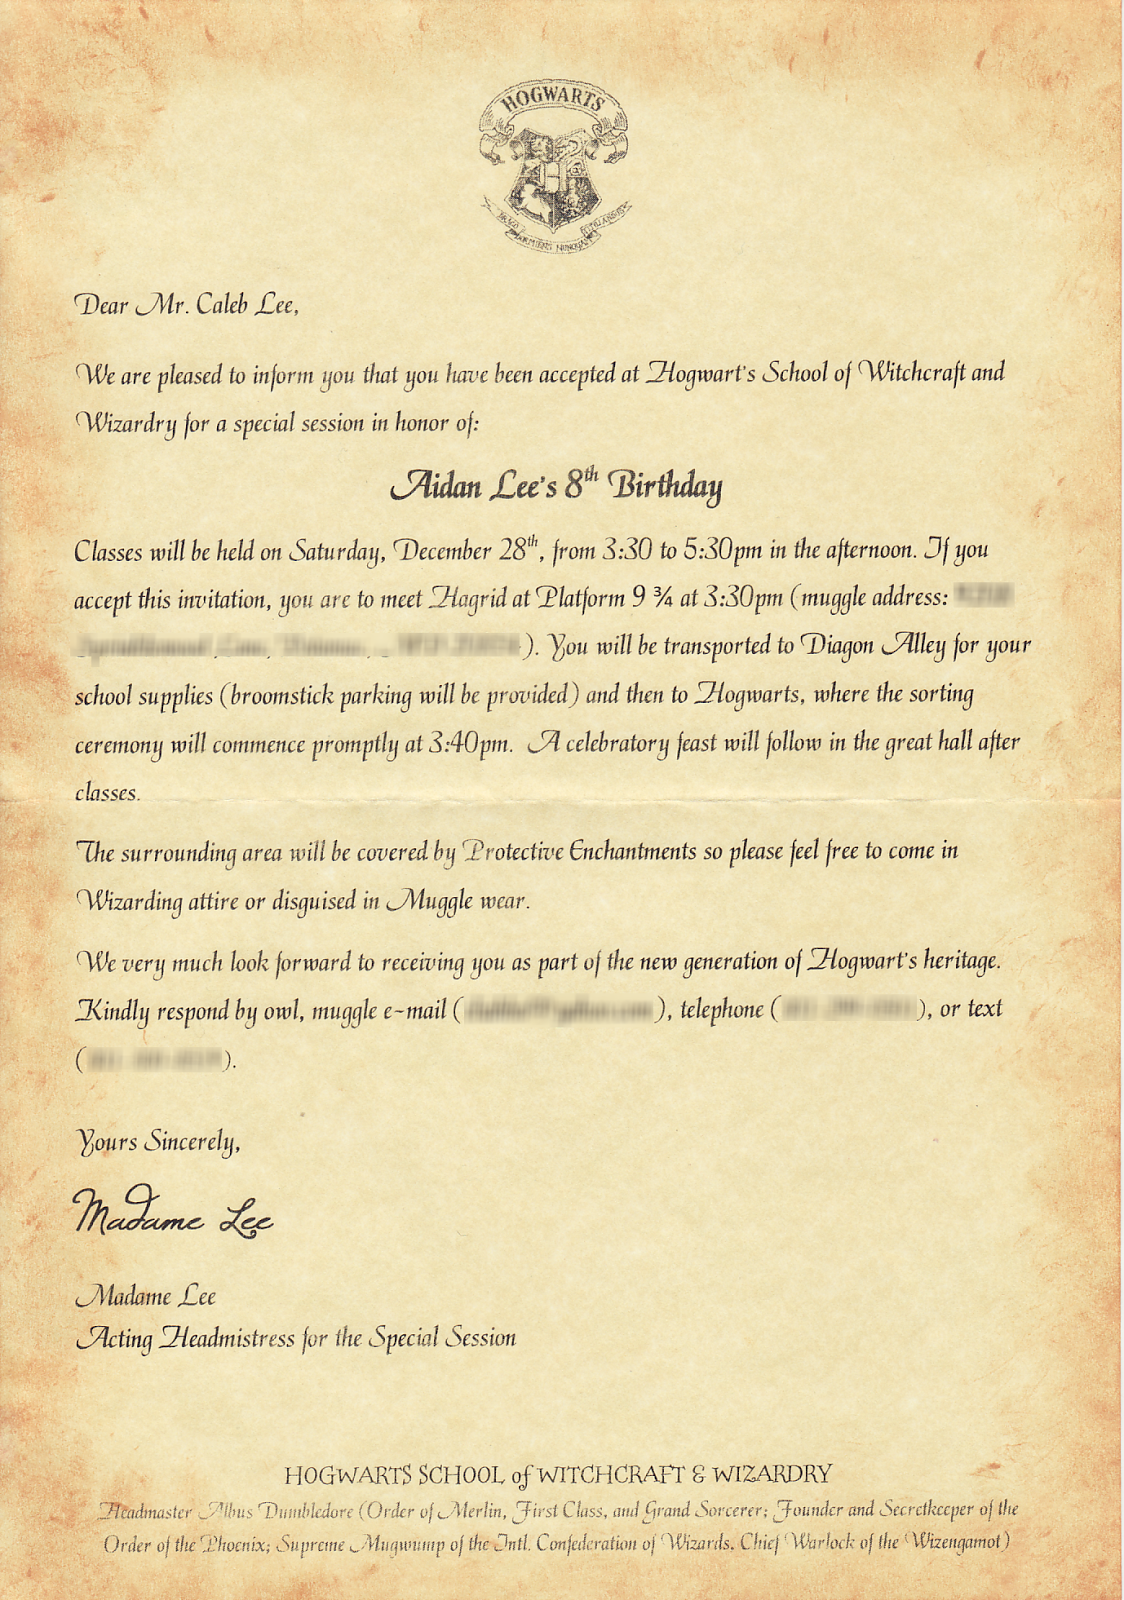 HOGWARTS
DRACO DORMIENS NUNQUAM TITILLANDUS
Dear Mr. Caleb Lee,
We are pleased to inform you that you have been accepted at Hogwart's School of Witchcraft and
Wizardry for a special session in honor of:
Aidan Lee's 8th Birthday
Classes will be held on Saturday, December 28th, from 3:30 to 5:30pm in the afternoon. If you
accept this invitation, you are to meet Hagrid at Platform 9 ¾ at 3:30pm (muggle address:
). You will be transported to Diagon Alley for your
school supplies (broomstick parking will be provided) and then to Hogwarts, where the sorting
ceremony will commence promptly at 3:40pm. A celebratory feast will follow in the great hall after
classes.
The surrounding area will be covered by Protective Enchantments so please feel free to come in
Wizarding attire or disguised in Muggle wear.
We very much look forward to receiving you as part of the new generation of Hogwart's heritage.
Kindly respond by owl, muggle e-mail ( ), telephone ( ), or text
( ).
Yours Sincerely,
Madame Lee
Madame Lee
Acting Headmistress for the Special Session
HOGWARTS SCHOOL of WITCHCRAFT & WIZARDRY
Headmaster Albus Dumbledore (Order of Merlin, First Class, and Grand Sorcerer; Founder and Secretkeeper of the
Order of the Phoenix; Supreme Mugwump of the Intl. Confederation of Wizards, Chief Warlock of the Wizengamot)